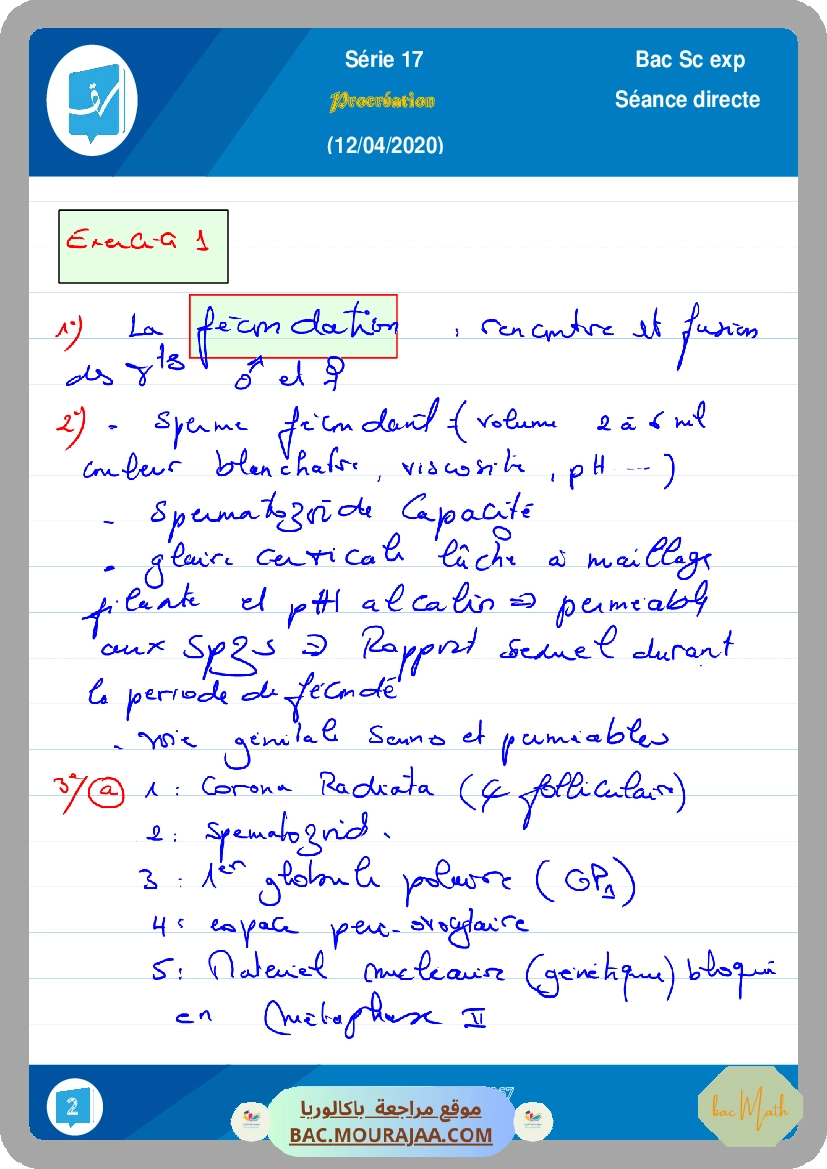 Série 17
Procréation
(12/04/2020)
Bac Sc exp
Séance directe
Exercice 1
1°) La fécondation, rencontre et fusion
des γtes ♂ et ♀
2°) - Sperme fécondant (volume 2 à 6 ml
couleur blanchatre, viscosité, pH ---)
- Spermatozoïde Capacité
- glaire cervicale lâche à maillage
filante et pH alcalin ⇒ perméable
aux Spzs ⇒ Rapport sexuel durant
la periode de fécondé
- voie génitale sains et perméables
3°/ (a) 1 : Corona Radiata (¢ folliculaire)
2 : Spematozoid.
3 : 1er globule polaire (GP1)
4 : espace peri-ovocytaire
5 : Materiel nucléaire (génétique) bloqué
en Métaphase II
2
موقع مراجعة باكالوريا
BAC.MOURAJAA.COM
bac Math